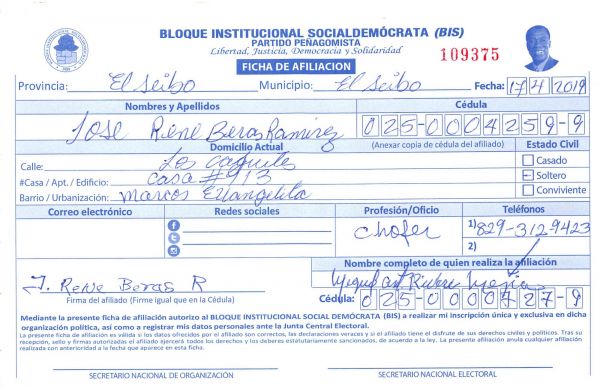 BLOQUE INSTITUCIONAL SOCIALDEMÓCRATA (BIS)
PARTIDO PEÑAGOMISTA
Libertad, Justicia, Democracia y Solidaridad
109375
FICHA DE AFILIACION
Provincia: El Seibo Municipio: El Seibo Fecha: 17 4 2019
Nombres y Apellidos Cédula
Jose Rene Beras Ramirez 025-0004259-9
Domicilio Actual (Anexar copia de cédula del afiliado) Estado Civil
Calle: Los Casado
#Casa / Apt. / Edificio: Casa #113 Soltero
Barrio / Urbanización: Marcos Evangelita Conviviente
Correo electrónico Redes sociales Profesión/Oficio Teléfonos
Chofer 1) 829-3129423
2)
Nombre completo de quien realiza la afiliación
J. Rene Beras R
Firma del afiliado (Firme igual que en la Cédula) Cédula: 025-0000727-9
Mediante la presente ficha de afiliación autorizo al BLOQUE INSTITUCIONAL SOCIAL DEMÓCRATA (BIS) a realizar mi inscripción única y exclusiva en dicha
organización política, así como a registrar mis datos personales ante la Junta Central Electoral.
La presente ficha de afiliación es válida si los datos ofrecidos por el afiliado son correctos, las declaraciones veraces y si el afiliado tiene el disfrute de sus derechos civiles y políticos. Tras su
recepción, sello y firmas autorizadas el afiliado ejercerá todos los derechos y los deberes estatutariamente sancionados, de acuerdo a la ley. La presente afiliación anula cualquier afiliación
realizada con anterioridad a la fecha que aparece en esta ficha.
SECRETARIO NACIONAL DE ORGANIZACIÓN SECRETARIO NACIONAL ELECTORAL